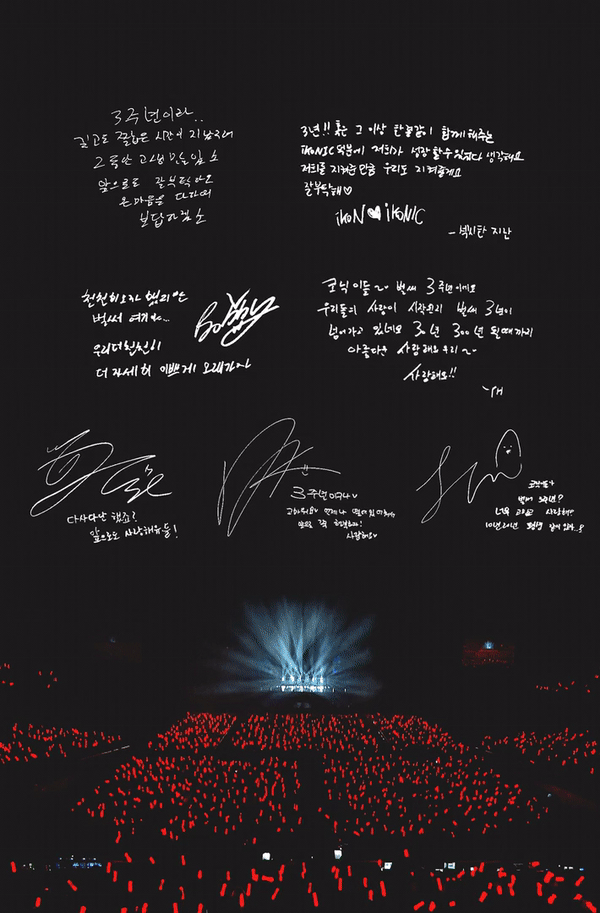 3주년이라..
길고도 짧은 시간이 지났네
그동안 고생 많았소
앞으로도 잘 부탁하오
온 마음을 다하여
보답하겠소
3년!! 혹은 그 이상 한결같이 함께 해주는
iKONIC 덕분에 저희가 성장할 수 있었다 생각해요
저희를 지켜준만큼 우리도 지켜줄게요
잘 부탁해♡
iKON♥iKONIC
- 벅시탄 지난
천천히 오자 했지만
벌써 여기네...
우리 더 천천히
더 자세히 이쁘게 오래가자
Bobby
코닉이들~ 벌써 3주년이네요
우리들의 사랑이 시작된지 벌써 3년이
넘어가고 있네요 30년 300년 될때까지
사랑해요 우리~
사랑해요!!
-YH
다사다난 했죠?
앞으로도 사랑해유들!
3주년이구나♡
고마워요♡ 언제나
사랑해요♡
벌써 3주년?
너무 고맙고 사랑해!!
10년 20년 평생 같이